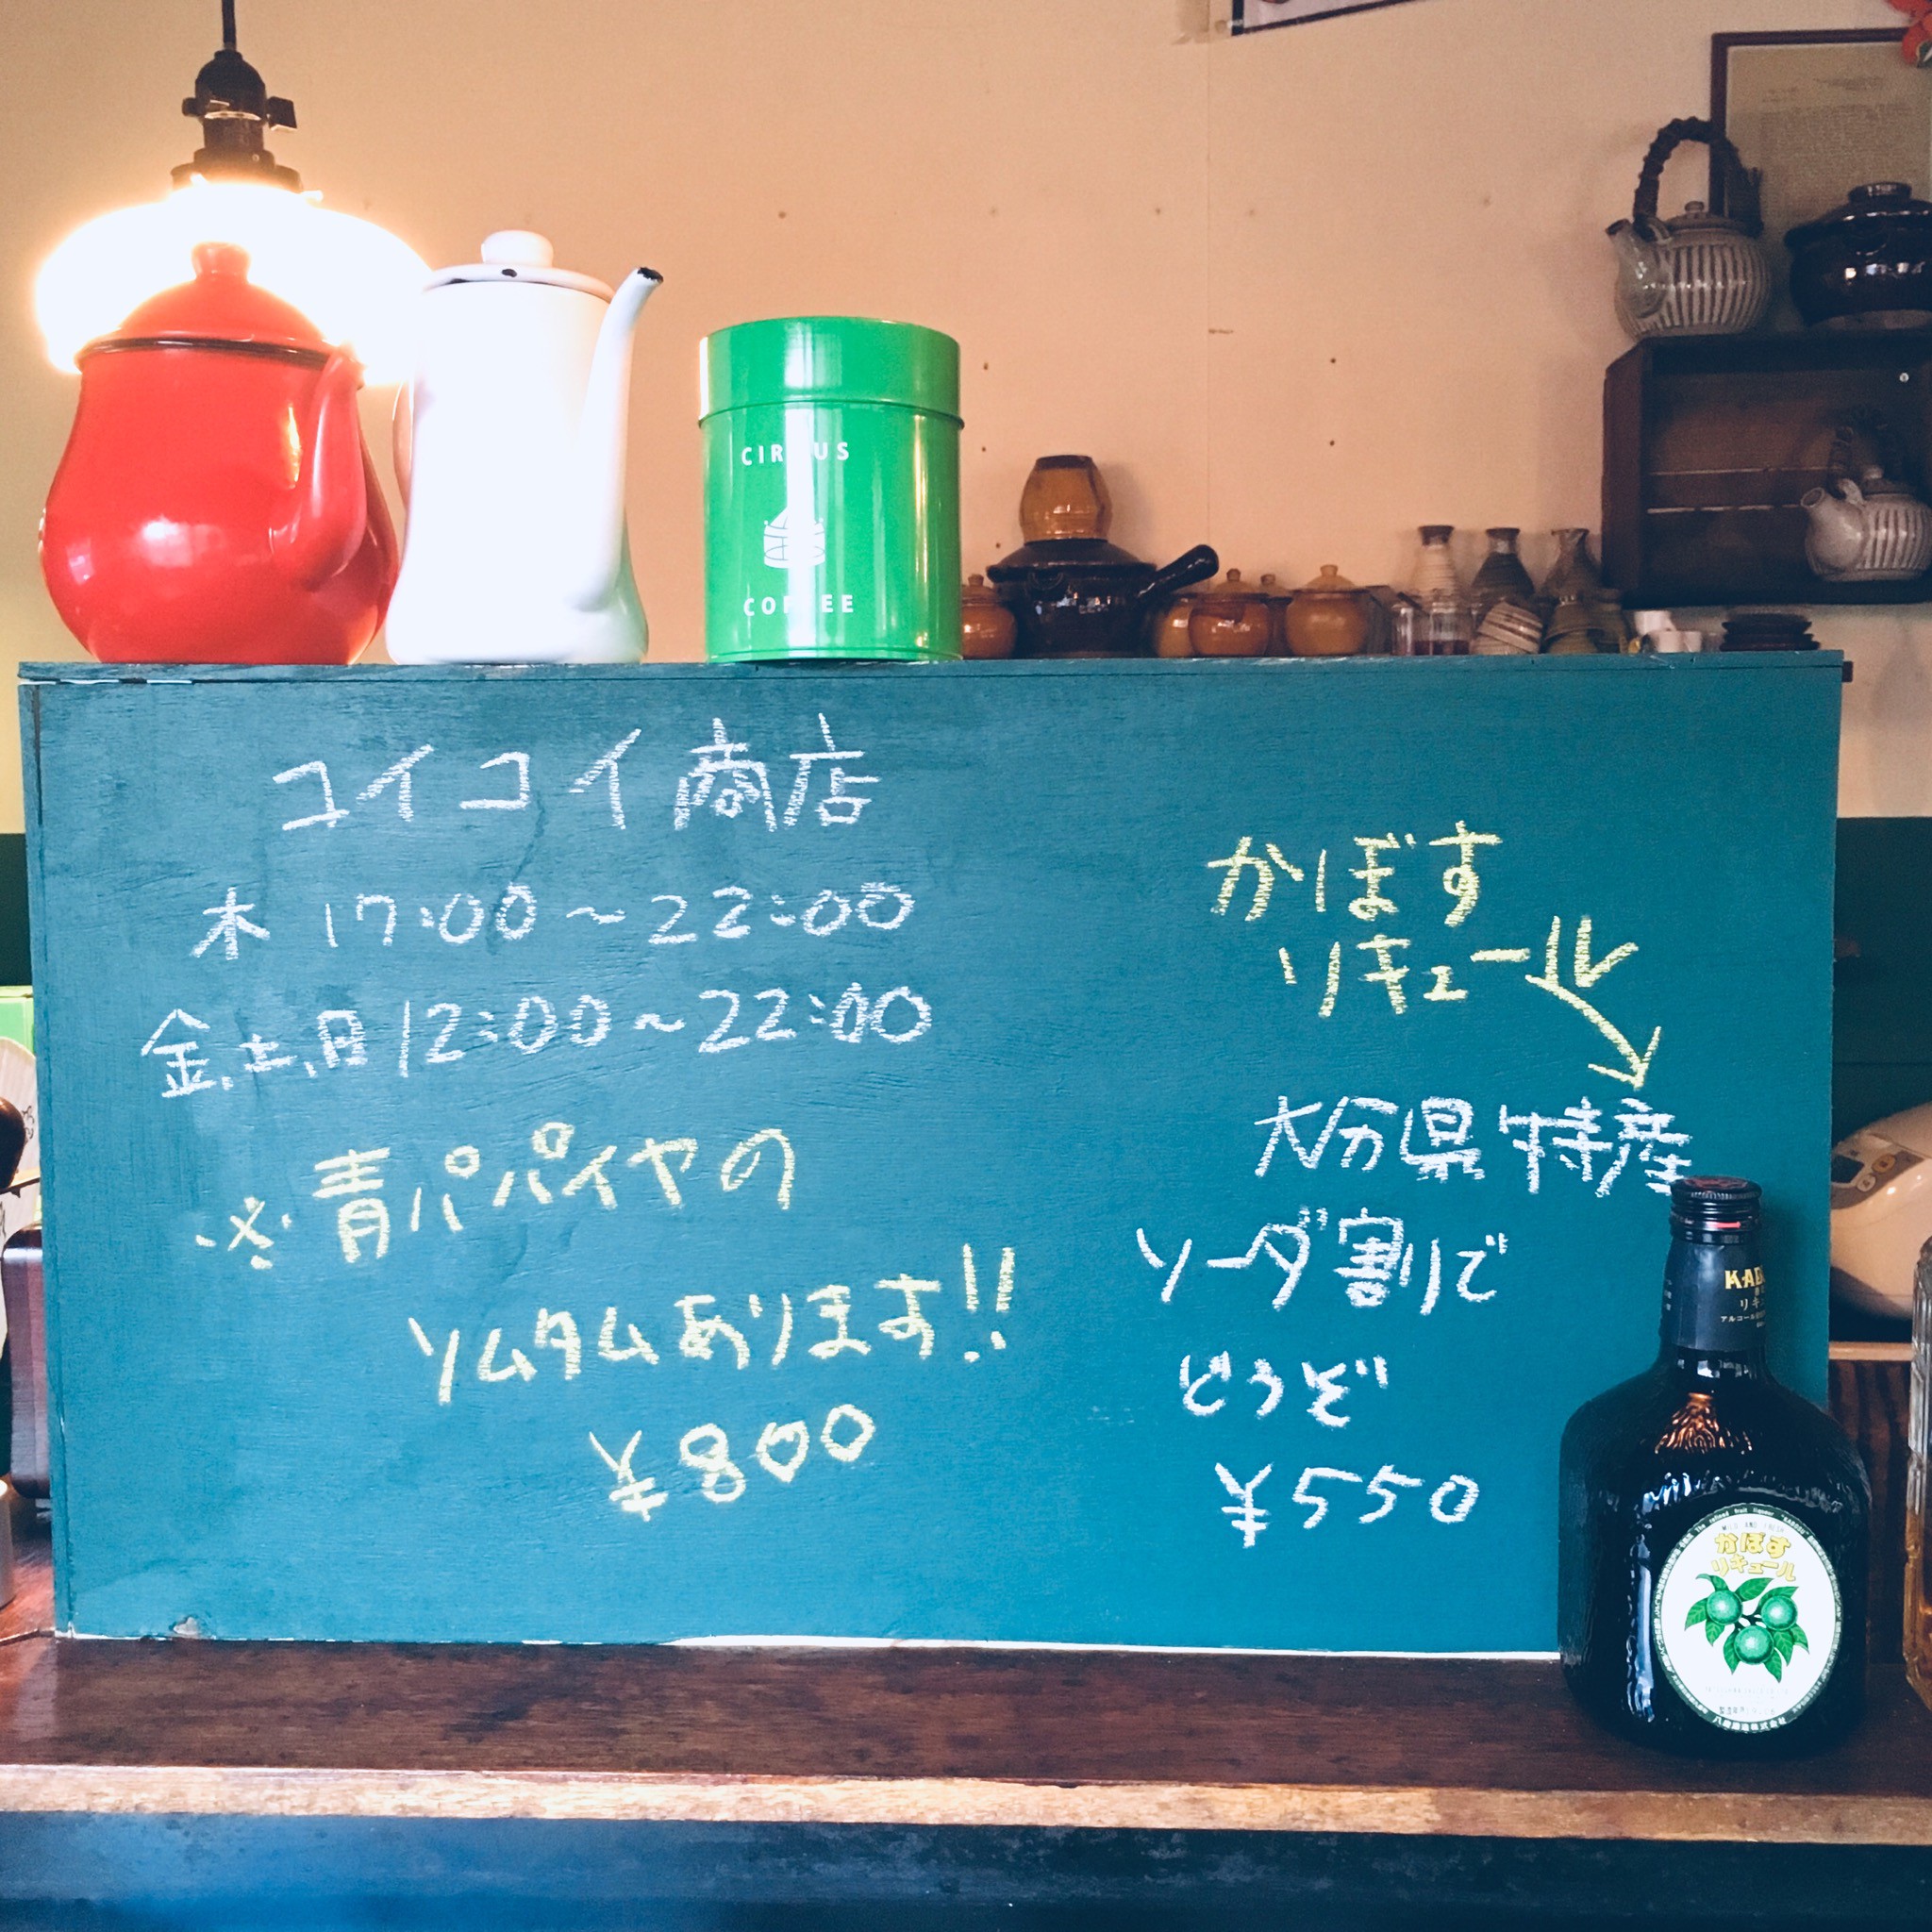 CIRCUS
COFFEE
ユイコイ商店
木 17:00～22:00
金、土、日 12:00～22:00
※青パパイヤの
ソムタムあります!!
¥800
かぼす
リキュール
大分県特産
ソーダ割りで
どうぞ
¥550
かぼす
リキュール